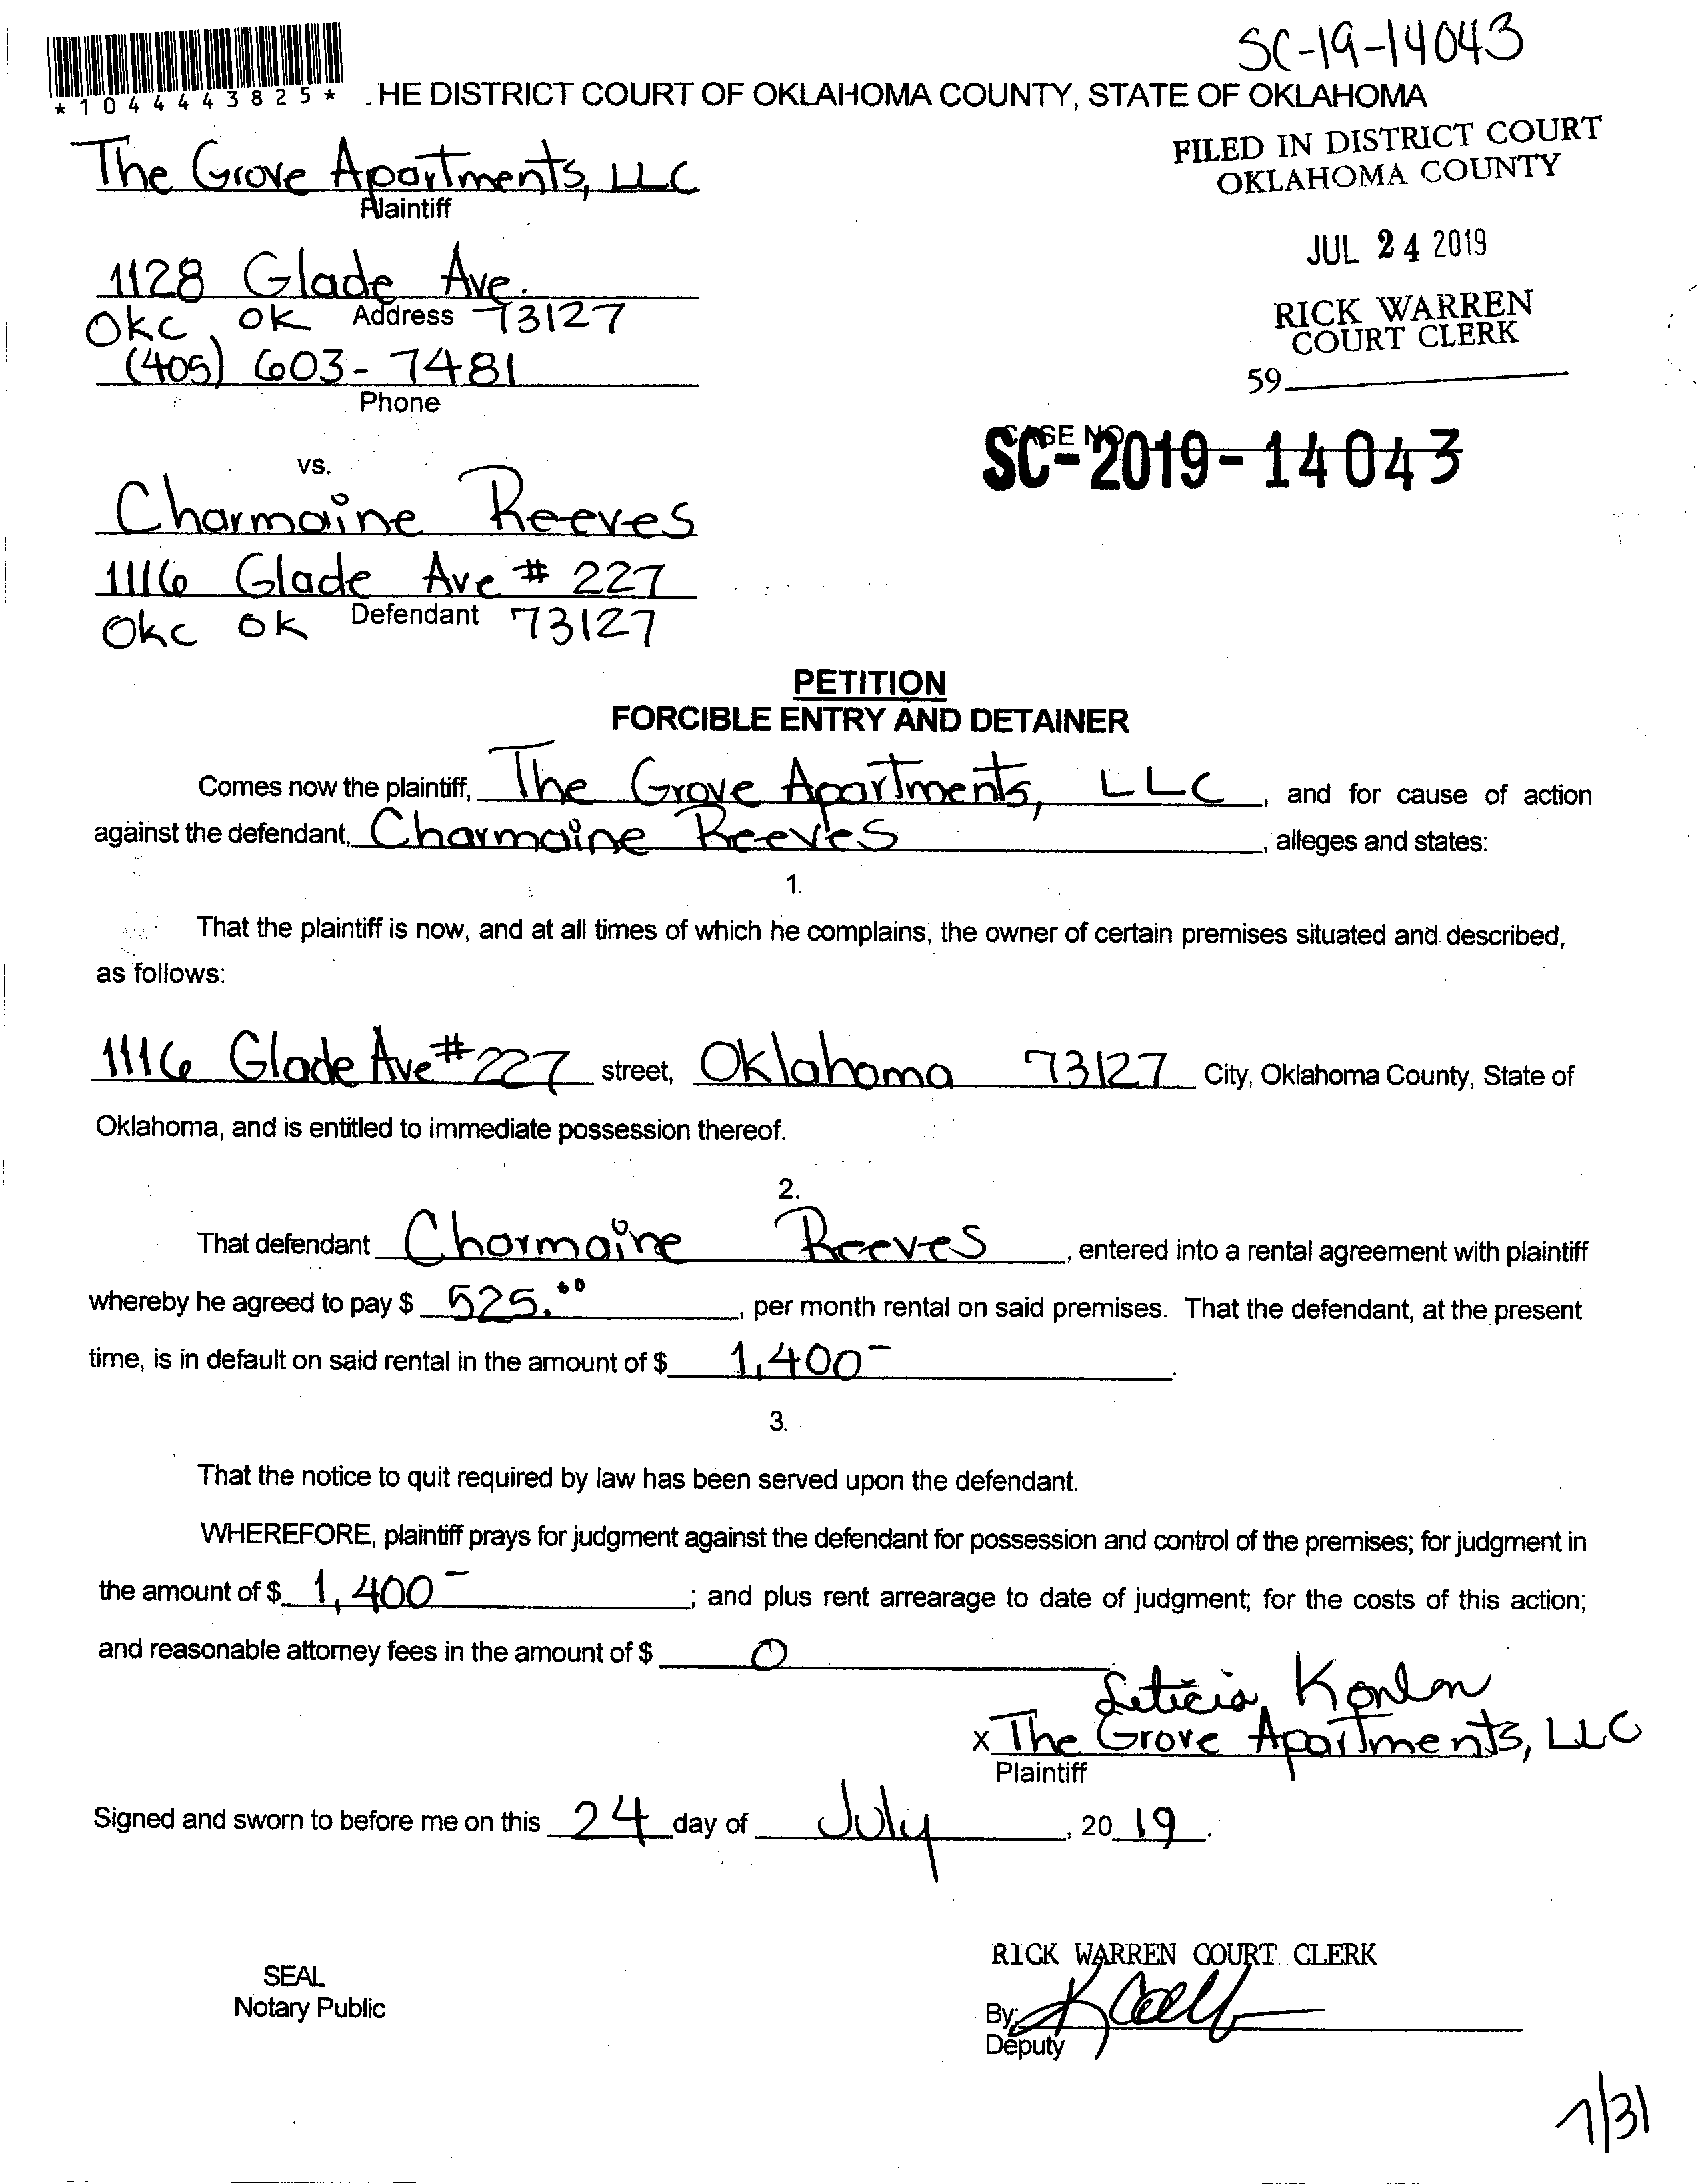 SC-19-14043
*1044443825* HE DISTRICT COURT OF OKLAHOMA COUNTY, STATE OF OKLAHOMA
The Grove Apartments, LLC
Plaintiff
FILED IN DISTRICT COURT
OKLAHOMA COUNTY
JUL 24 2019
RICK WARREN
COURT CLERK
59
1128 Glade Ave.
Address
OKC, OK 73127
(405) 603-7481
Phone
CASE NO.
SC-2019-14043
vs.
Charmaine Reeves
1116 Glade Ave # 227
Defendant
Okc OK 73127
PETITION
FORCIBLE ENTRY AND DETAINER
Comes now the plaintiff, The Grove Apartments, LLC, and for cause of action
against the defendant, Charmaine Reeves, alleges and states:
1.
That the plaintiff is now, and at all times of which he complains, the owner of certain premises situated and described,
as follows:
1116 Glade Ave #227 street, Oklahoma 73127 City, Oklahoma County, State of
Oklahoma, and is entitled to immediate possession thereof.
2.
That defendant Charmaine Reeves, entered into a rental agreement with plaintiff
whereby he agreed to pay $ 525.00, per month rental on said premises. That the defendant, at the present
time, is in default on said rental in the amount of $ 1,400-.
3.
That the notice to quit required by law has been served upon the defendant.
WHEREFORE, plaintiff prays for judgment against the defendant for possession and control of the premises; for judgment in
the amount of $ 1,400-; and plus rent arrearage to date of judgment; for the costs of this action;
and reasonable attorney fees in the amount of $ 0
Leticia
x The Grove Apartments, LLC
Plaintiff
Signed and sworn to before me on this 24 day of July, 20 19.
RICK WARREN COURT CLERK
SEAL
Notary Public
By:
Deputy
7/31